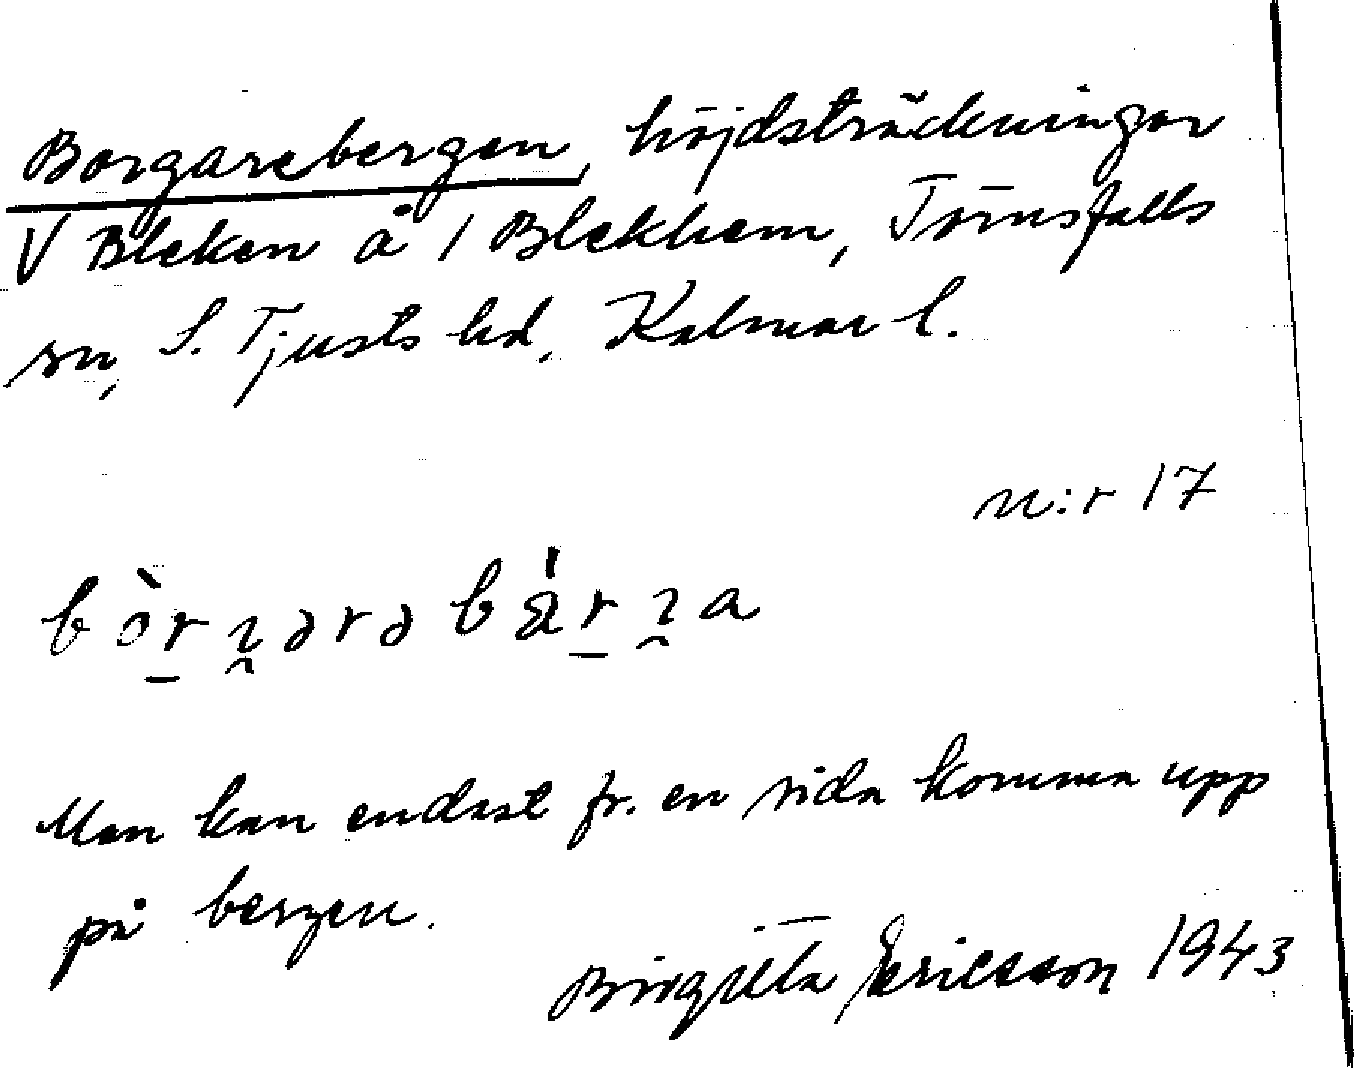 Borgarebergen, höjdsträckningar
V Bleken å / Blekhem, Törnsfalls
sn, S. Tjusts hd, Kalmar l.
n:r 17
Man kan endast fr. en sida komma upp
på bergen.
Birgitta Ericsson 1943